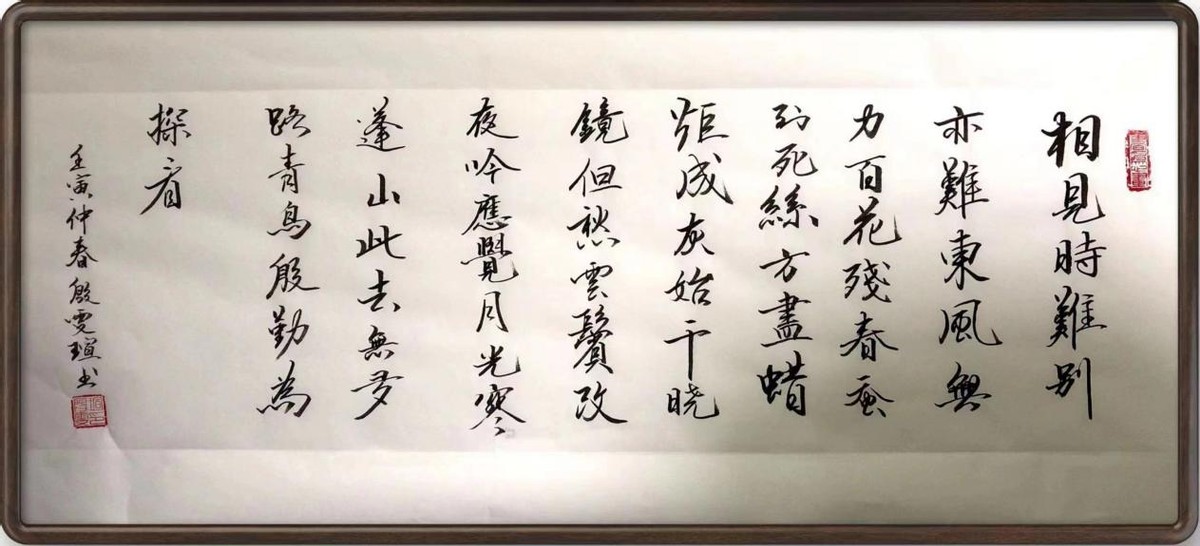 相見時難别
亦難東風無
力百花殘春蚕
到死絲方盡蜡
炬成灰始干晓
鏡但愁雲鬢改
夜吟應覺月光寒
蓬山此去無多
路青鳥殷勤為
探看
壬寅仲春殷雯瑄书